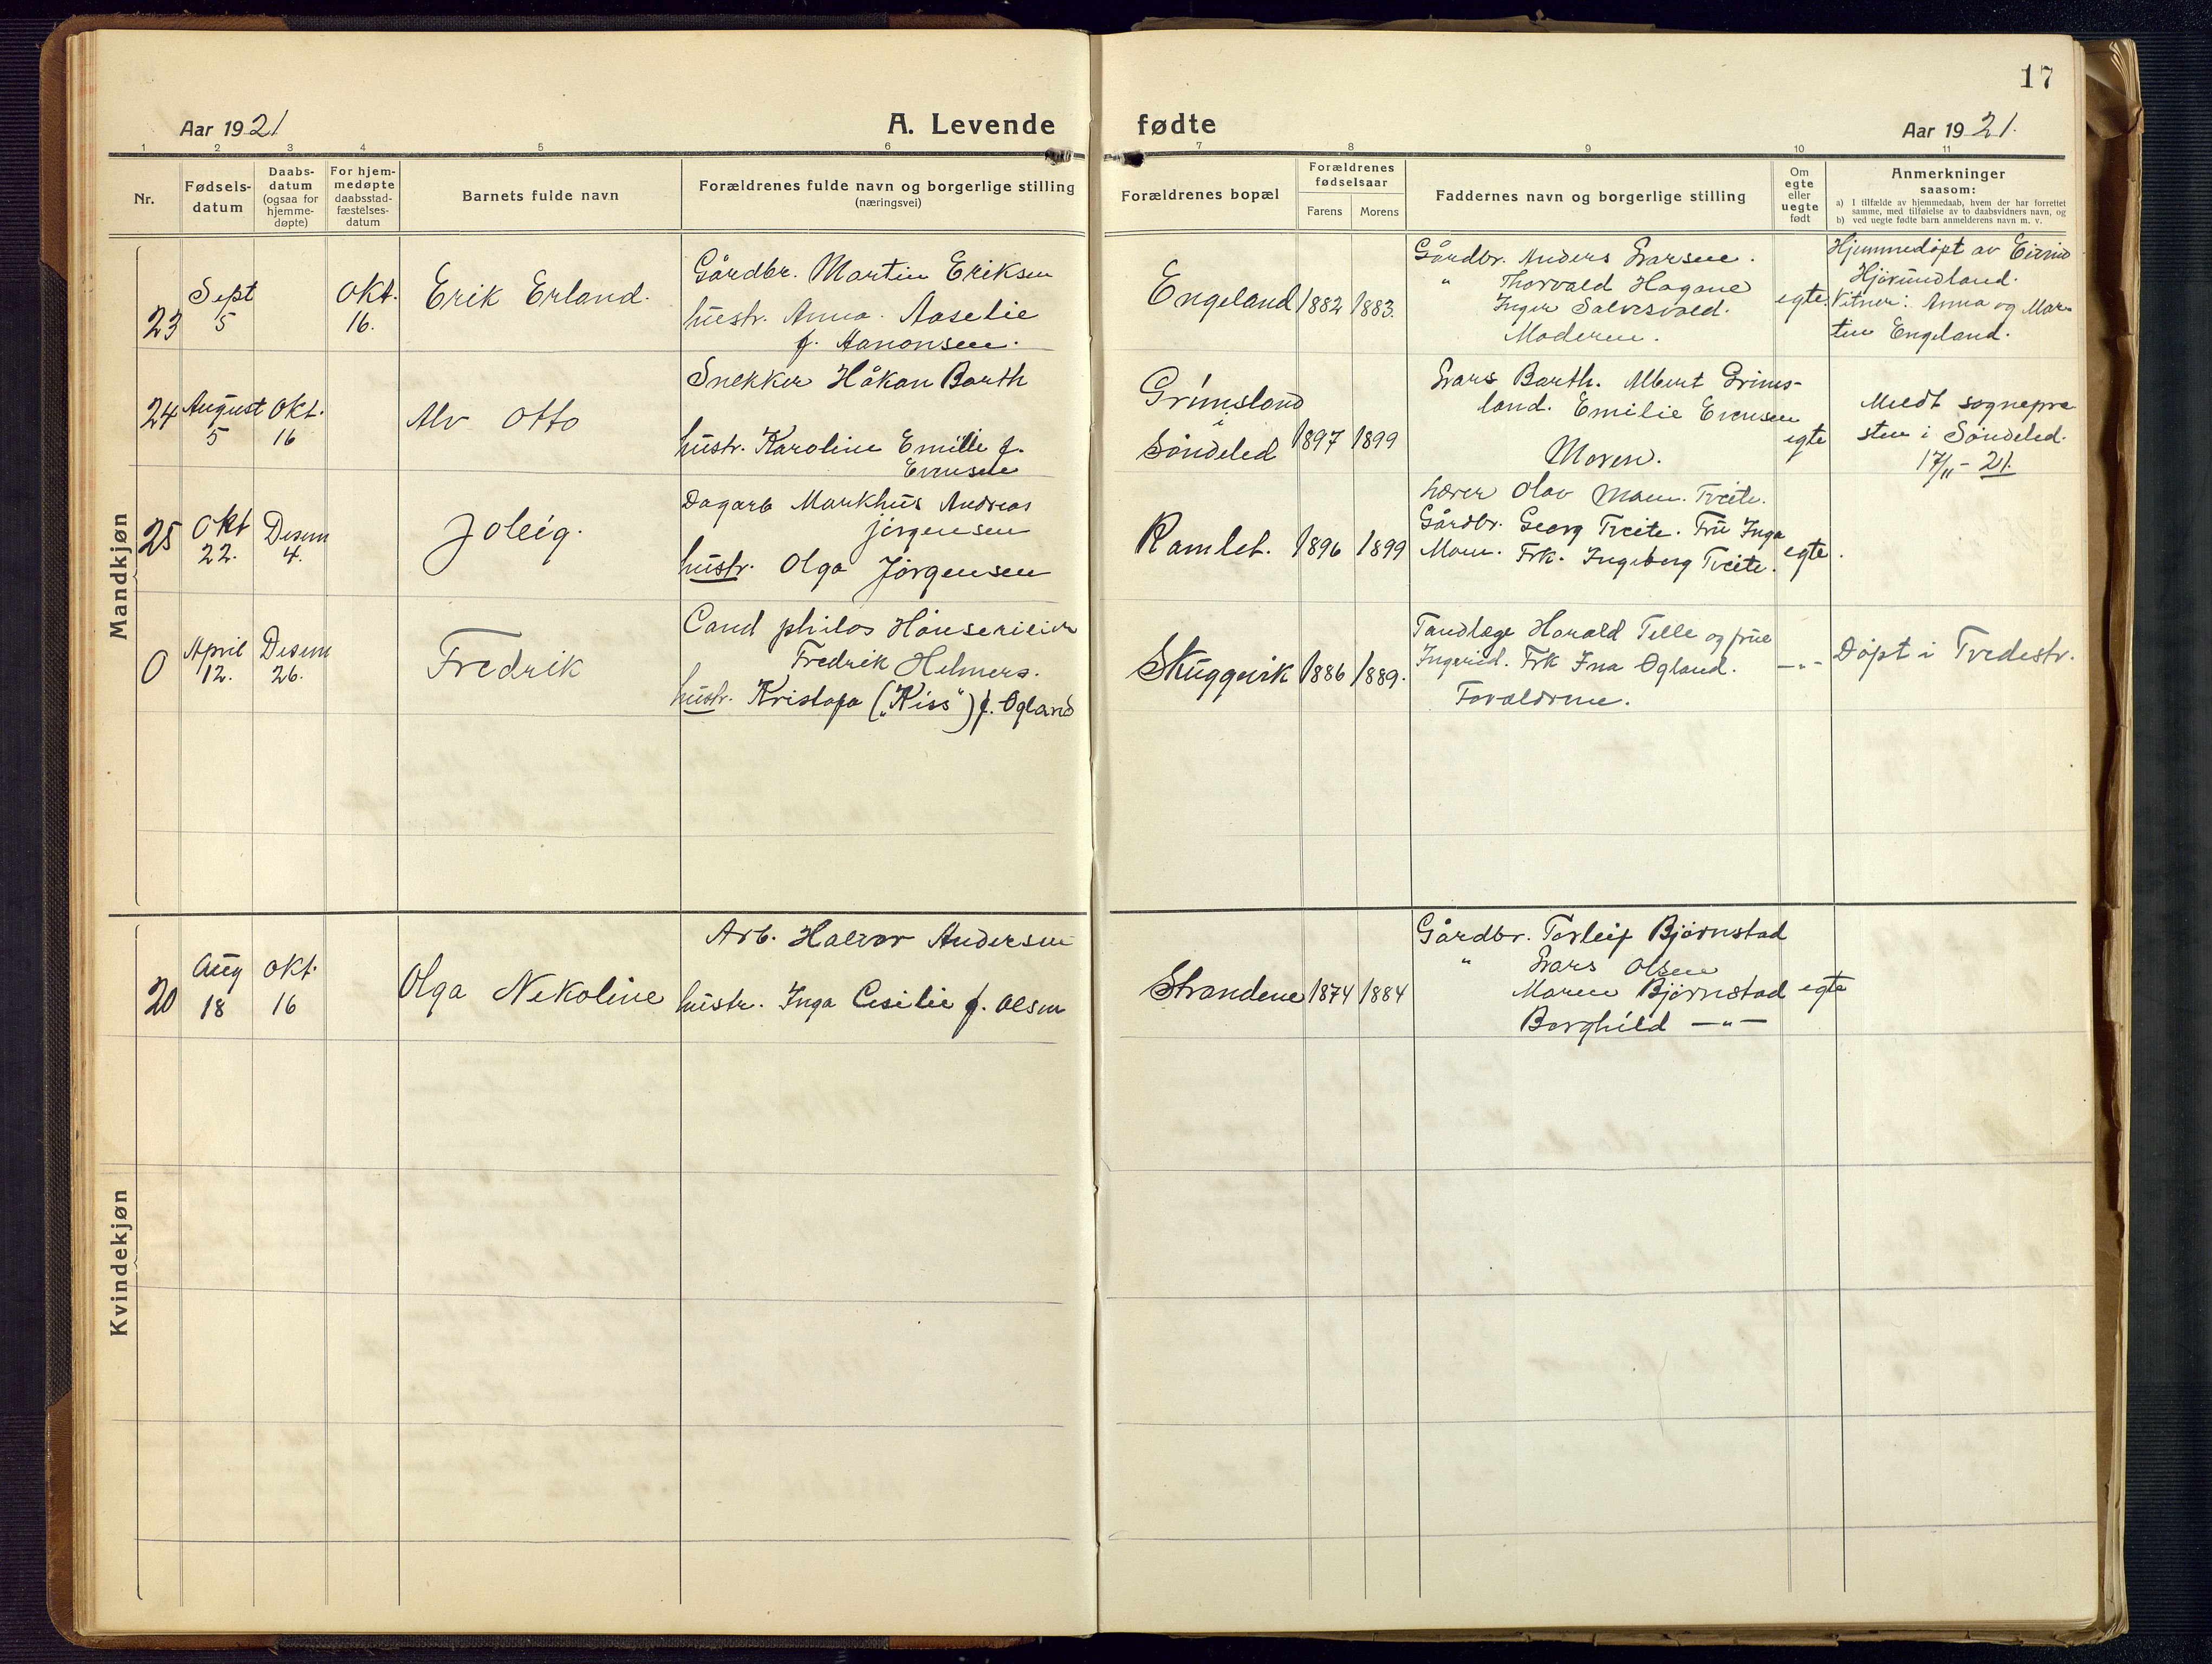 17
Aar 1921
A. Levende fødte
Aar 1921.
1 2 3 4 5 6 7 8 9 10 11
Nr.
Fødsels-
datum
Daabs-
datum
(ogsaa for
hjemme-
døpte)
For hjem-
medøpte
daabsstad-
fæstelses-
datum
Barnets fulde navn
Forældrenes fulde navn og borgerlige stilling
(næringsvei)
Forældrenes bopæl
Forældrenes
fødselsaar
Farens Morens
Faddernes navn og borgerlige stilling
Om
egte
eller
uegte
født
Anmerkninger
saasom:
a) I tilfælde av hjemmedaab, hvem der har forrettet
samme, med tilføielse av to daabsvidners navn, og
b) ved uegte fødte barn anmelderens navn m. v.
Mandkjøn
23
Sept
5
Okt.
16.
Erik Erland.
Gårdbr. Martin Eriksen
hustr. Anna Aaselie
f. Aanonsen.
Engeland
1882
1883.
Gårdbr. Anders Larsen.
" Thorvald Hagane
Inger Salvesvold.
Moderen.
egte.
Hjemmedøpt av
Hjorundland.
Vitner: Anna og Mar
tin Engeland.
24
August
5
Okt.
16
Alv Otto
Snekker Håkan Barth
hustr. Karoline Emilie f.
Evensen
Grimsland
i
Søndeled
1897
1899
Lars Barth. Albert Grims-
land. Emilie Evensen
Moren.
egte
Meldt sognepre
sten i Søndeled.
17/11 - 21.
25
Okt
22.
Desem
4.
Joleig.
Dagarb Markhus Andreas
Jørgensen
hustr. Olga Jørgensen
Ramlet.
1896
1899
Lærer Olav Moen. Tveite.
Gårdbr. Georg Tveite. Fru Inga
Moen. Frk. Ingeborg Tveite.
egte.
0
April
12.
Desem
26.
Fredrik
Cand philos
Fredrik Helmers.
hustr. Kristofa ("Kiss") f. Ogland
Skuggevik
1886
1889.
Tandlæge Harald Telle og frue
Ingerid. Frk Ina Ogland.
Forældrene.
-"-
Døpt i Tvedestr.
Kvindekjøn
20
Aug
18
Okt.
16
Olga Nikoline
Arb. Halvor Andersen
hustr. Inga Cesilie f. Olsen
Strandene
1874
1884
Gårdbr. Torleif Bjørnstad
" Lars Olsen
Maren Bjørnstad
Borghild -"-
egte